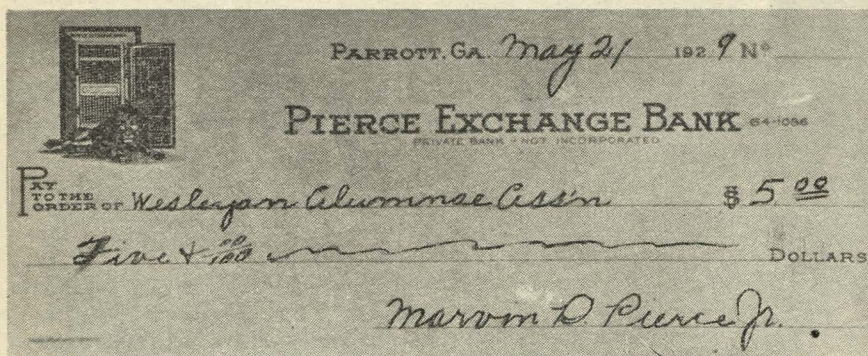 PARROTT, GA. May 21 1929 No
PIERCE EXCHANGE BANK 64-1086
PRIVATE BANK - NOT INCORPORATED
PAY TO THE ORDER OF Wesleyan Alumnae Ass'n $ 5.00
Five & 00/100 DOLLARS
Marvin D. Pierce Jr.